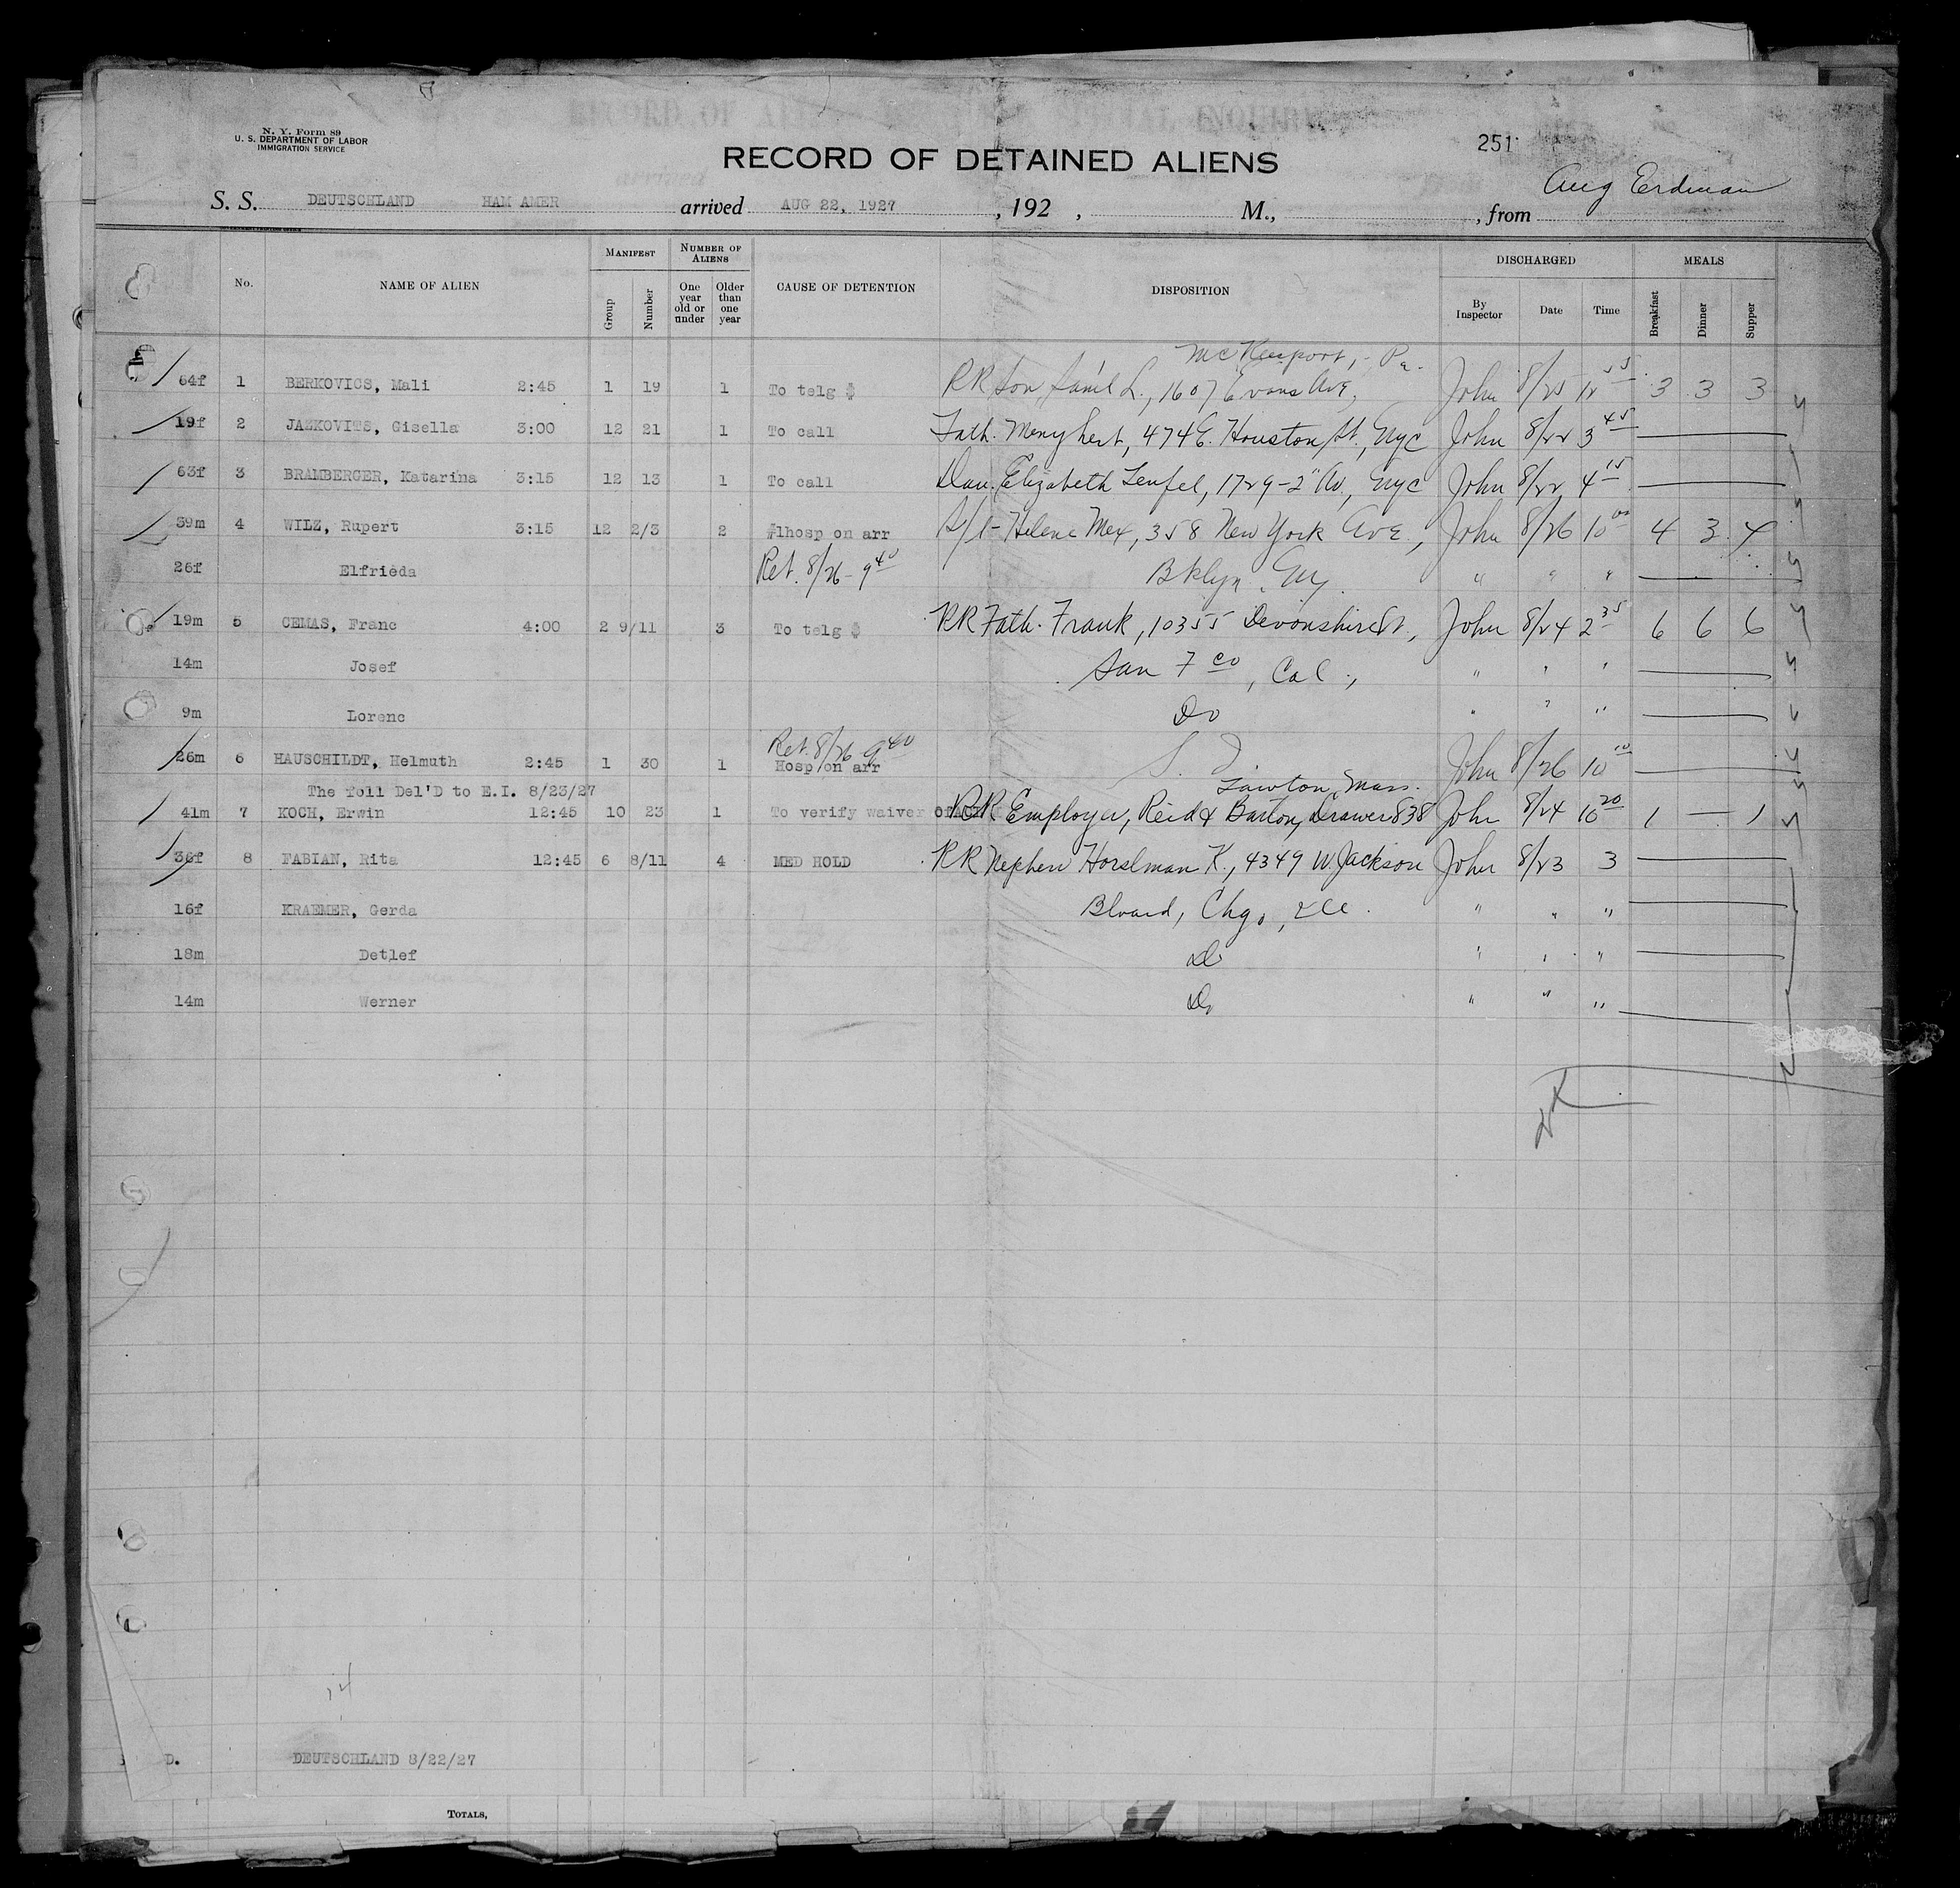 N. Y. Form 89
U. S. DEPARTMENT OF LABOR
IMMIGRATION SERVICE
RECORD OF DETAINED ALIENS
251
Aug Erdman
S. S. DEUTSCHLAND HAM AMER arrived AUG 22, 1927, 192 , M., , from
No. NAME OF ALIEN MANIFEST Group Number NUMBER OF ALIENS One year old or under Older than one year CAUSE OF DETENTION DISPOSITION DISCHARGED By Inspector Date Time MEALS Breakfast Dinner Supper
McKeesport, Pa.
64f 1 BERKOVICS, Mali 2:45 1 19 1 To telg $ RR Son Sam'l L., 1607 Evans Ave, John 8/25 12 55 3 3 3
19f 2 JAZKOVITS, Gisella 3:00 12 21 1 To call Fath. Menyhert, 474 E. Houston St., NYC John 8/22 3 45
63f 3 BRAMBERGER, Katarina 3:15 12 13 1 To call Dau. Elizabeth Tenfel, 1729-2" Av, NYC John 8/22 4 15
39m 4 WILZ, Rupert 3:15 12 2/3 2 #1hosp on arr S/l- Helene Mex, 358 New York Ave, John 8/26 10 00 4 3 4
26f Elfrieda Ret. 8/26 - 9 40 Bklyn. NY " " "
19m 5 CEMAS, Franc 4:00 2 9/11 3 To telg $ RR Fath. Frank, 10355 Devonshire St, John 8/24 2 35 6 6 6
14m Josef San F co, Cal., " " "
9m Lorenc Do " " "
Ret. 8/26 9 40
26m 6 HAUSCHILDT, Helmuth 2:45 1 30 1 Hosp on arr S. I John 8/26 10 10
The foll Del'D to E.I. 8/23/27 Tawton, Mass.
41m 7 KOCH, Erwin 12:45 10 23 1 To verify waiver of RR Employer, Reid & Barton, Drawer 838 John 8/24 10 20 1 — 1
36f 8 FABIAN, Rita 12:45 6 8/11 4 MED HOLD RR Nephew Horslman K., 4349 W. Jackson John 8/23 3
16f KRAEMER, Gerda Blvard, Chgo, Ill. " " "
18m Detlef Do " " "
14m Werner Do " " "
14
D. DEUTSCHLAND 8/22/27
TOTALS,